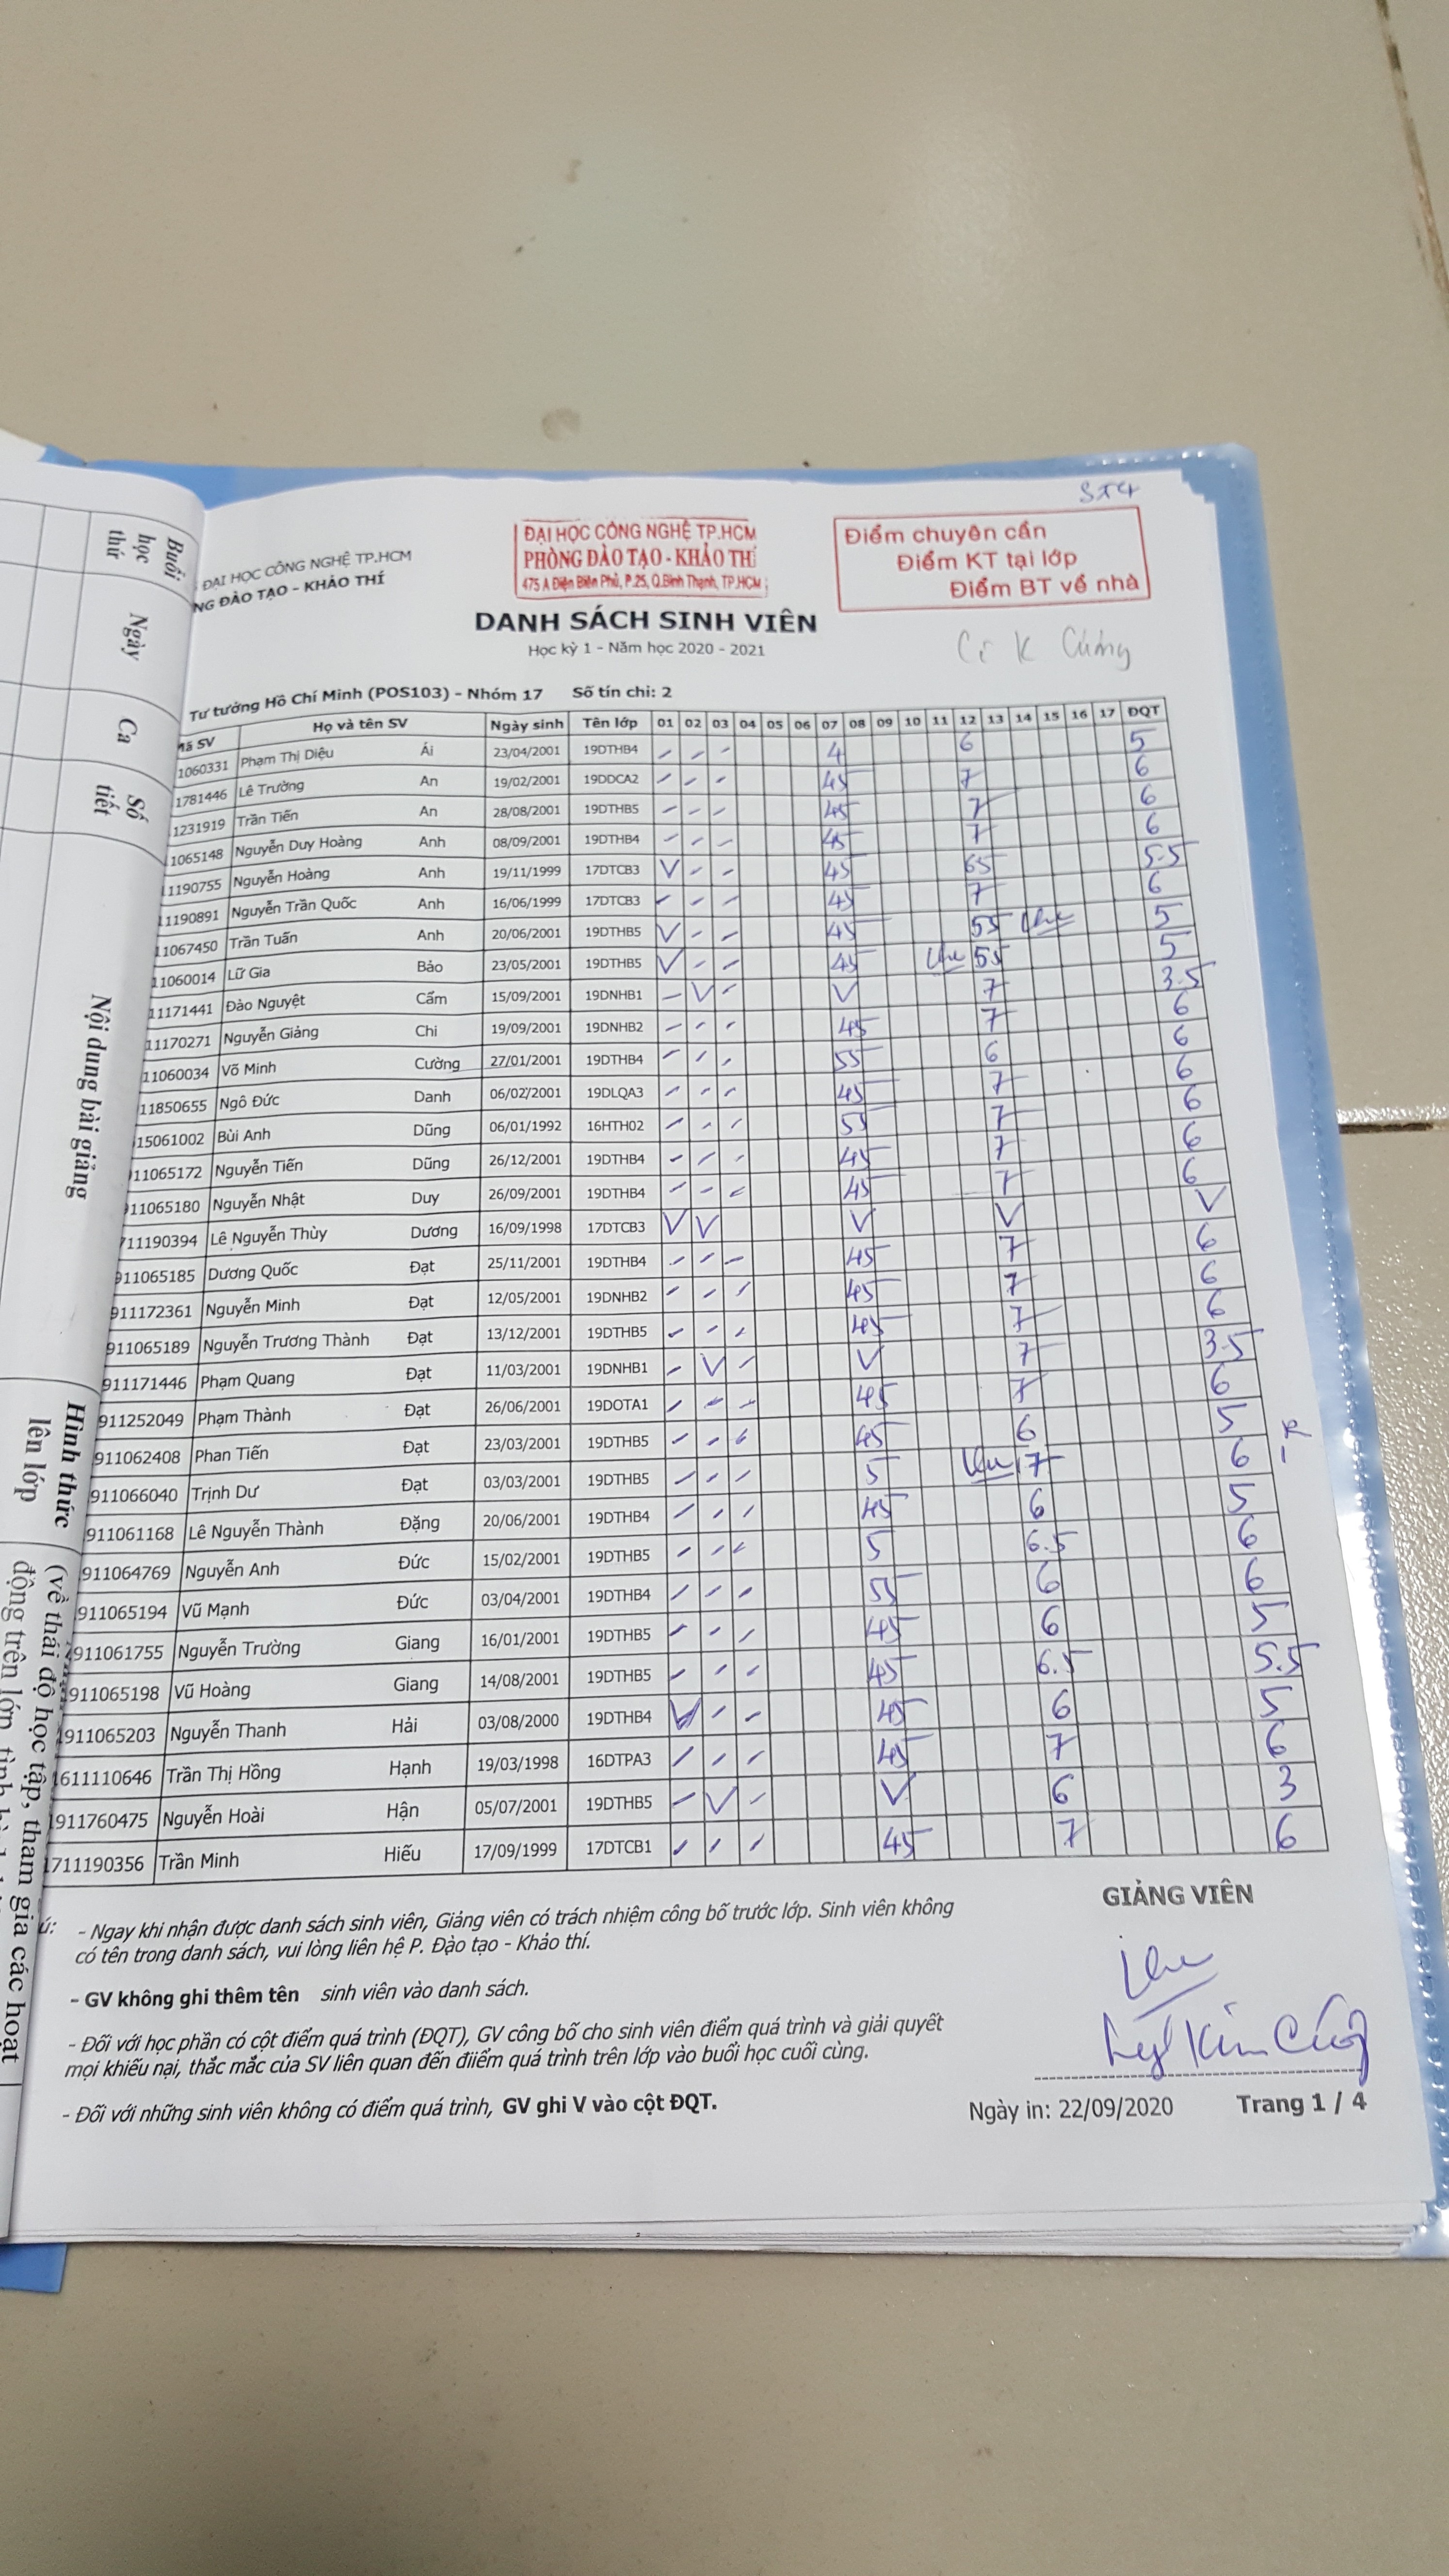 Buổi học thứ
Ngày
Ca
Số tiết
Nội dung bài giảng
Hình thức lên lớp
(về thái độ học tập, tham gia các hoạt
động trên lớp
ĐẠI HỌC CÔNG NGHỆ TP.HCM
NG ĐÀO TẠO - KHẢO THÍ
ĐẠI HỌC CÔNG NGHỆ TP.HCM
PHÒNG ĐÀO TẠO - KHẢO THÍ
475 A Điện Biên Phủ, P.25, Q.Bình Thạnh, TP.HCM
Điểm chuyên cần
Điểm KT tại lớp
Điểm BT về nhà
DANH SÁCH SINH VIÊN
Học kỳ 1 - Năm học 2020 - 2021
C K Cương
Tư tưởng Hồ Chí Minh (POS103) - Nhóm 17 Số tín chỉ: 2
Mã SV Họ và tên SV Ngày sinh Tên lớp 01 02 03 04 05 06 07 08 09 10 11 12 13 14 15 16 17 ĐQT
1060331 Phạm Thị Diệu Ái 23/04/2001 19DTHB4 4 6 5
1781446 Lê Trường An 19/02/2001 19DDCA2 45 7 6
1231919 Trần Tiến An 28/08/2001 19DTHB5 45 7 6
1065148 Nguyễn Duy Hoàng Anh 08/09/2001 19DTHB4 45 7 6
11190755 Nguyễn Hoàng Anh 19/11/1999 17DTCB3 V 45 65 5.5
11190891 Nguyễn Trần Quốc Anh 16/06/1999 17DTCB3 45 7 6
11067450 Trần Tuấn Anh 20/06/2001 19DTHB5 V 45 55 5
11060014 Lữ Gia Bảo 23/05/2001 19DTHB5 V 45 55 5
11171441 Đào Nguyệt Cầm 15/09/2001 19DNHB1 V V 7 3.5
11170271 Nguyễn Giảng Chi 19/09/2001 19DNHB2 45 7 6
11060034 Võ Minh Cường 27/01/2001 19DTHB4 55 6 6
11850655 Ngô Đức Danh 06/02/2001 19DLQA3 45 7 6
15061002 Bùi Anh Dũng 06/01/1992 16HTH02 55 7 6
911065172 Nguyễn Tiến Dũng 26/12/2001 19DTHB4 45 7 6
911065180 Nguyễn Nhật Duy 26/09/2001 19DTHB4 45 7 6
711190394 Lê Nguyễn Thùy Dương 16/09/1998 17DTCB3 V V V V V
911065185 Dương Quốc Đạt 25/11/2001 19DTHB4 45 7 6
911172361 Nguyễn Minh Đạt 12/05/2001 19DNHB2 45 7 6
911065189 Nguyễn Trương Thành Đạt 13/12/2001 19DTHB5 45 7 6
911171446 Phạm Quang Đạt 11/03/2001 19DNHB1 V V 7 3.5
911252049 Phạm Thành Đạt 26/06/2001 19DOTA1 45 7 6
911062408 Phan Tiến Đạt 23/03/2001 19DTHB5 45 6 5
911066040 Trịnh Dư Đạt 03/03/2001 19DTHB5 5 7 6
911061168 Lê Nguyễn Thành Đặng 20/06/2001 19DTHB4 45 6 5
911064769 Nguyễn Anh Đức 15/02/2001 19DTHB5 5 6.5 6
911065194 Vũ Mạnh Đức 03/04/2001 19DTHB4 55 6 6
911061755 Nguyễn Trường Giang 16/01/2001 19DTHB5 45 6 5
911065198 Vũ Hoàng Giang 14/08/2001 19DTHB5 45 6.5 5.5
911065203 Nguyễn Thanh Hải 03/08/2000 19DTHB4 V 45 6 5
1611110646 Trần Thị Hồng Hạnh 19/03/1998 16DTPA3 45 7 6
1911760475 Nguyễn Hoài Hận 05/07/2001 19DTHB5 V V 6 3
1711190356 Trần Minh Hiếu 17/09/1999 17DTCB1 45 7 6
ú: - Ngay khi nhận được danh sách sinh viên, Giảng viên có trách nhiệm công bố trước lớp. Sinh viên không
có tên trong danh sách, vui lòng liên hệ P. Đào tạo - Khảo thí.
- GV không ghi thêm tên sinh viên vào danh sách.
- Đối với học phần có cột điểm quá trình (ĐQT), GV công bố cho sinh viên điểm quá trình và giải quyết
mọi khiếu nại, thắc mắc của SV liên quan đến điiểm quá trình trên lớp vào buổi học cuối cùng.
- Đối với những sinh viên không có điểm quá trình, GV ghi V vào cột ĐQT.
GIẢNG VIÊN
Ngày in: 22/09/2020 Trang 1 / 4